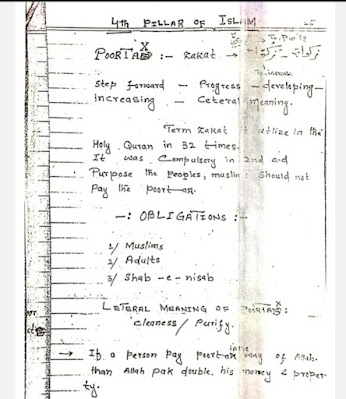 4th PILLAR OF ISLAM
POORTAX :- Zakat → زكواة - تزكية
Step forward - Progress - developing -
Increasing - Ceteral meaning.
Term Zakat utlize in the
Holy Quran in 32 times.
It was Compulsory in 2nd a.d
Purpose the peoples, muslim should not
Pay the poortax.
-: OBLIGATIONS :-
1/ Muslims
2/ Adults
3/ Shab-e-nisab
LETERAL MEANING OF POORTAX:
Cleaness / Purify.
→ If a person Pay poortax in the way of Allah.
than Allah Pak double his money & proper-
ty.